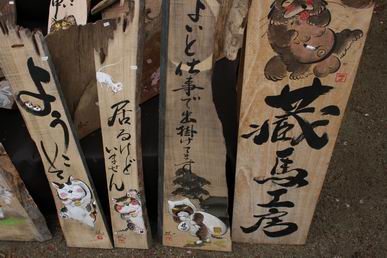 ようこそ
居るけど
いません
ちょいと仕事で出掛けてます
蔵馬工房